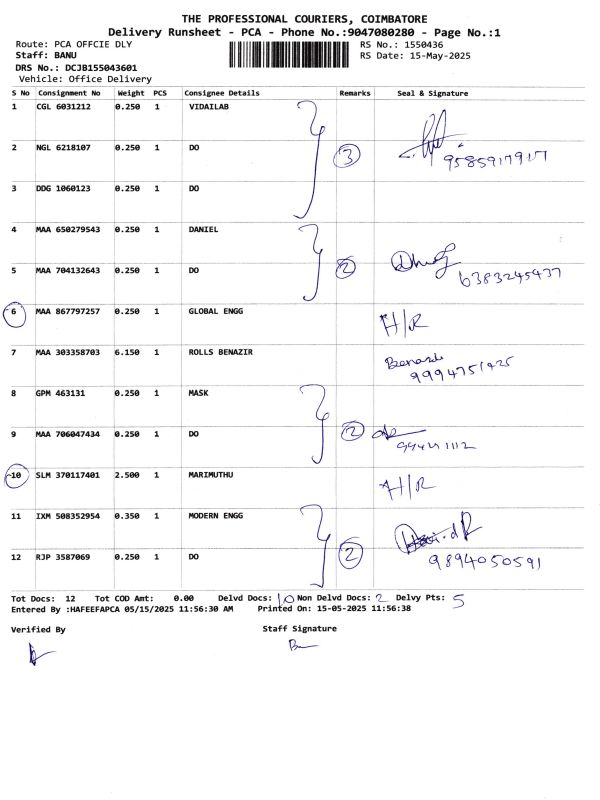 THE PROFESSIONAL COURIERS, COIMBATORE
Delivery Runsheet - PCA - Phone No.:9047080280 - Page No.:1
Route: PCA OFFCIE DLY RS No.: 1550436
Staff: BANU RS Date: 15-May-2025
DRS No.: DCJB155043601
Vehicle: Office Delivery
S No Consignment No Weight PCS Consignee Details Remarks Seal & Signature
1 CGL 6031212 0.250 1 VIDAILAB
2 NGL 6218107 0.250 1 DO 3 9585917917
3 DDG 1060123 0.250 1 DO
4 MAA 650279543 0.250 1 DANIEL
5 MAA 704132643 0.250 1 DO 2 6383245437
6 MAA 867797257 0.250 1 GLOBAL ENGG H/R
7 MAA 303358703 6.150 1 ROLLS BENAZIR 9994751425
8 GPM 463131 0.250 1 MASK
9 MAA 706047434 0.250 1 DO 2
10 SLM 370117401 2.500 1 MARIMUTHU H/R
11 IXM 508352954 0.350 1 MODERN ENGG
12 RJP 3587069 0.250 1 DO 2 9894050591
Tot Docs: 12 Tot COD Amt: 0.00 Delvd Docs: 10 Non Delvd Docs: 2 Delvy Pts: 5
Entered By :HAFEEFAPCA 05/15/2025 11:56:30 AM Printed On: 15-05-2025 11:56:38
Verified By Staff Signature